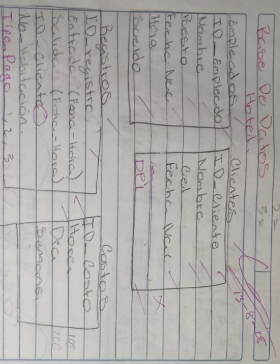 Base De Datos
Hotel
Empleados
ID_Empleado
Nombre
Puesto
Fecha Nac
Hora
Sueldo
Clientes
ID_Cliente
Nombre
Cel
Fecha Nac
DPI
Registros
ID_registro
Entrada (Fecha-Hora)
Salida (Fecha-Hora)
ID_Cliente
No. Habitacion
Tipo Pago 1, 2, 3
Costos
ID_Costo
Hora
Dia
Semana